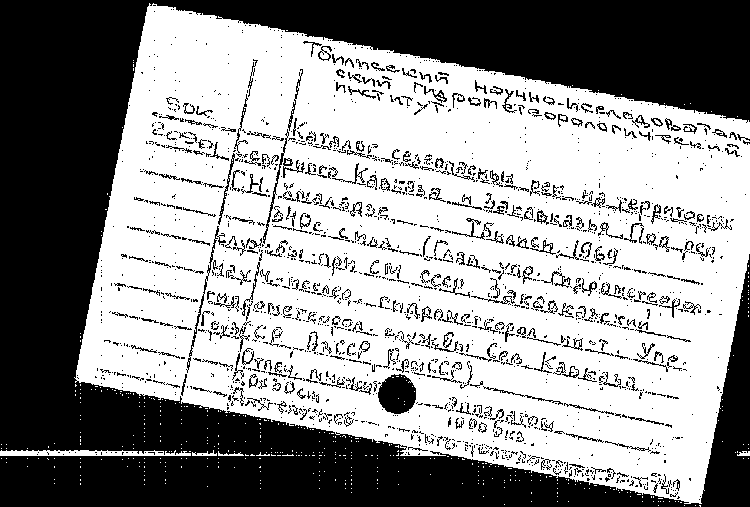 Тбилисский научно-исследователь
ский гидрометеорологический
институт.
80К
20901
Каталог селеопасных рек на территории
Северного Кавказа и Закавказья. Под ред.
Г.Н. Хмаладзе. Тбилиси, 1969
340с. с илл. (Глав. упр. гидрометеорол.
службы при СМ СССР. Закавказский
науч.-исслед. гидрометеорол. ин-т. Упр.
гидрометеорол. службы Сев. Кавказа,
ГрузССР, АзССР, АрмССР).
Отпеч. множит. аппаратом
20х30см. 1000 экз.
Для служеб ного пользования.